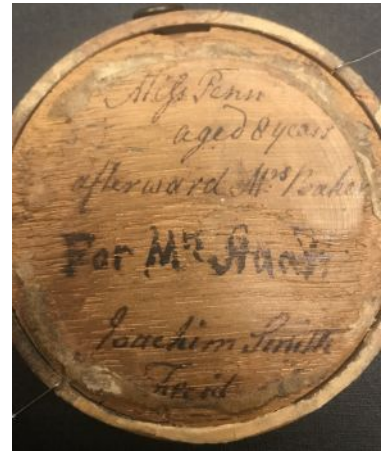 Miss Penn
aged 8 years
afterward Mrs Baker
For Mr
Isachim Smith
Fecit